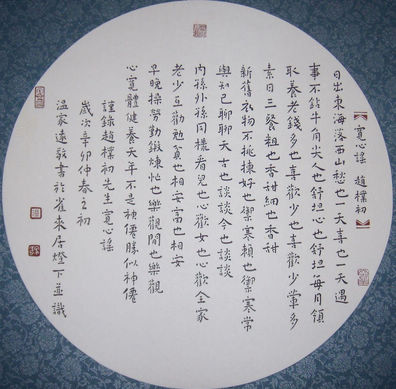 寬心謠 趙樸初
日出東海落西山愁也一天喜也一天遇
事不鉆牛角尖人也舒坦心也舒坦每月領
取養老錢多也喜歡少也喜歡少葷多
素日三餐粗也香甜細也香甜
新舊衣物不挑揀好也禦寒賴也禦寒常
與知己聊聊天古也談談今也談談
內孫外孫同樣看兒也心歡女也心歡全家
老少互勸勉貧也相安富也相安
早晚操勞勤鍛煉忙也樂觀閒也樂觀
心寬體健養天年不是神僊勝似神僊
謹錄趙樸初先生寬心謠
歲次辛卯仲春之初
溫家遠敬書於來居燈下並識